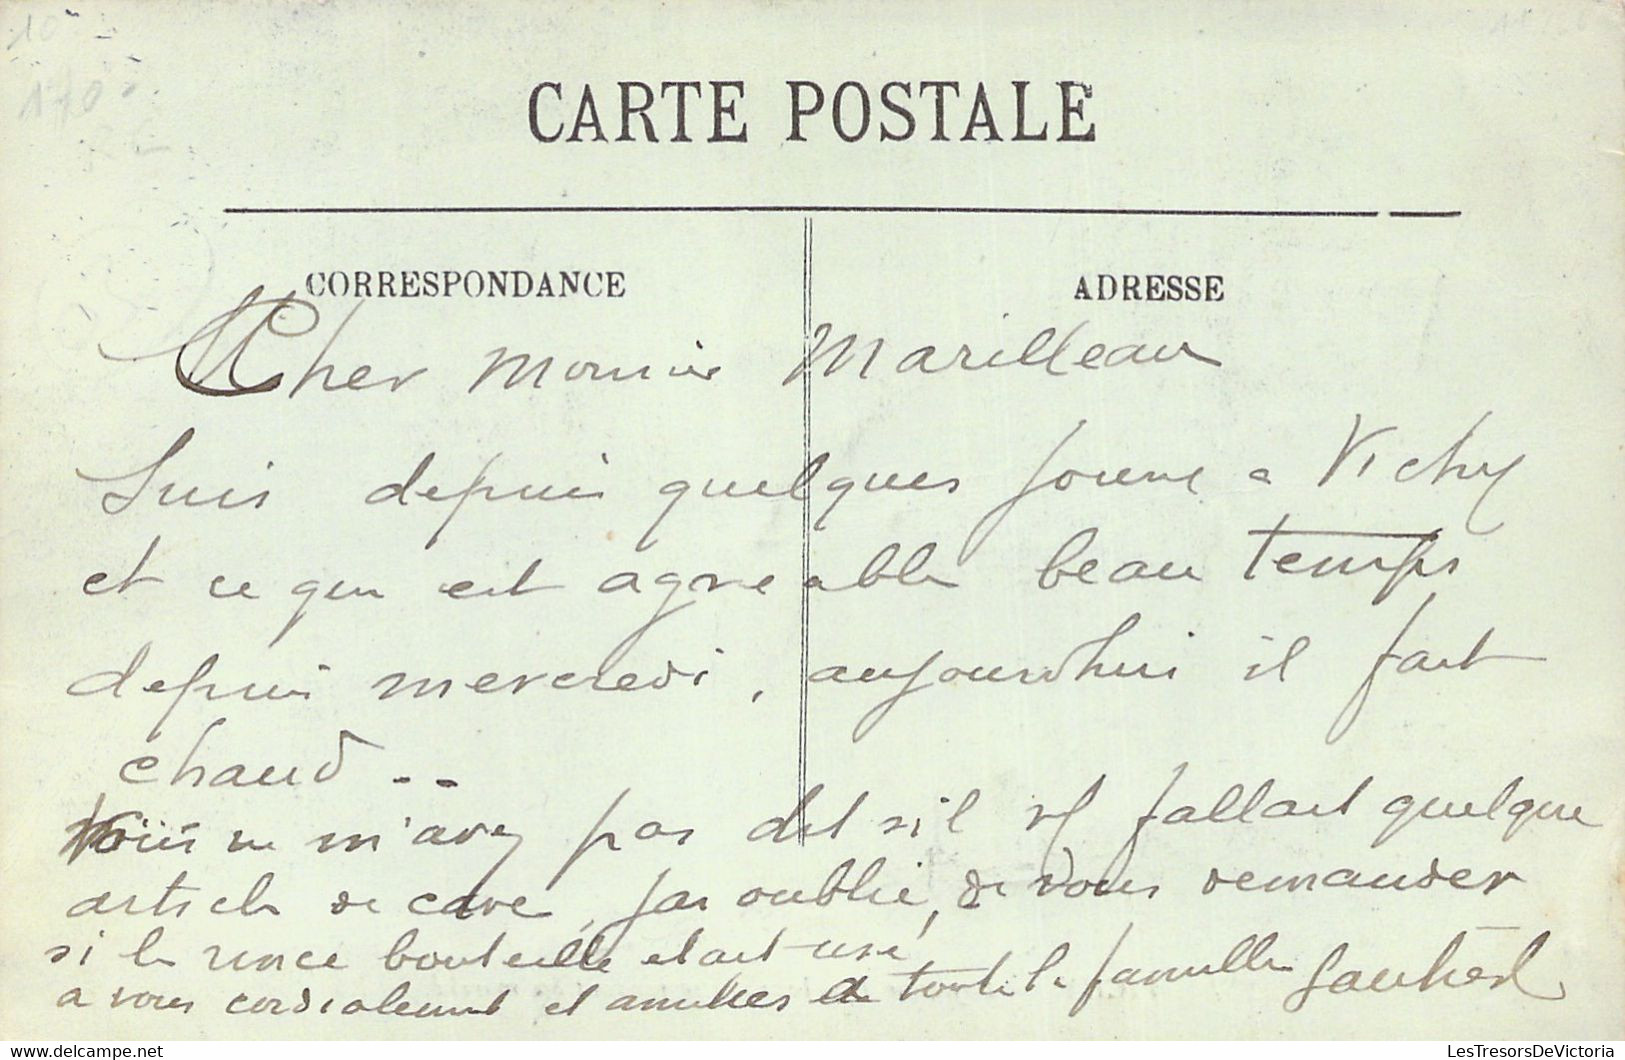 CARTE POSTALE
CORRESPONDANCE
ADRESSE
Cher monsieur Marilleau
Suis depuis quelques jours a Vichy
et ce qui est agreable beau temps
depuis mercredi, aujourdhui il fait
chaud --
Vous ne m'avez pas dit s'il fallait quelque
article de cave, j'ai oublié, de vous demander
si le rince bouteille etait usé
a vous cordialement et amities a toute la famille
www.delcampe.net
LesTresorsDeVictoria